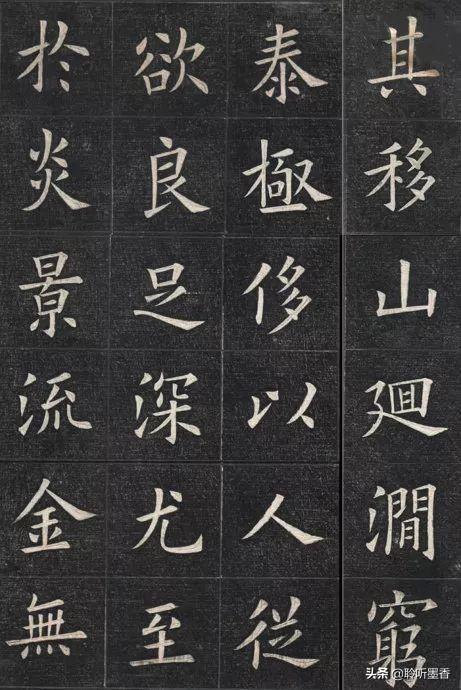 其移山廻澗窮
泰極侈以人從
欲良足深尤至
於炎景流金無
头条 @聆听墨香